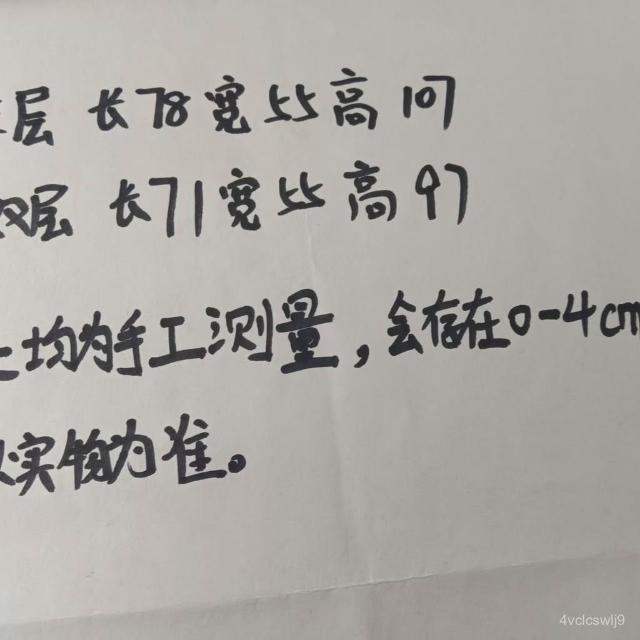 层 长78宽55高107
双层 长71宽55高97
上均为手工测量,会存在0-4cm
以实物为准。
4vclcswlj9